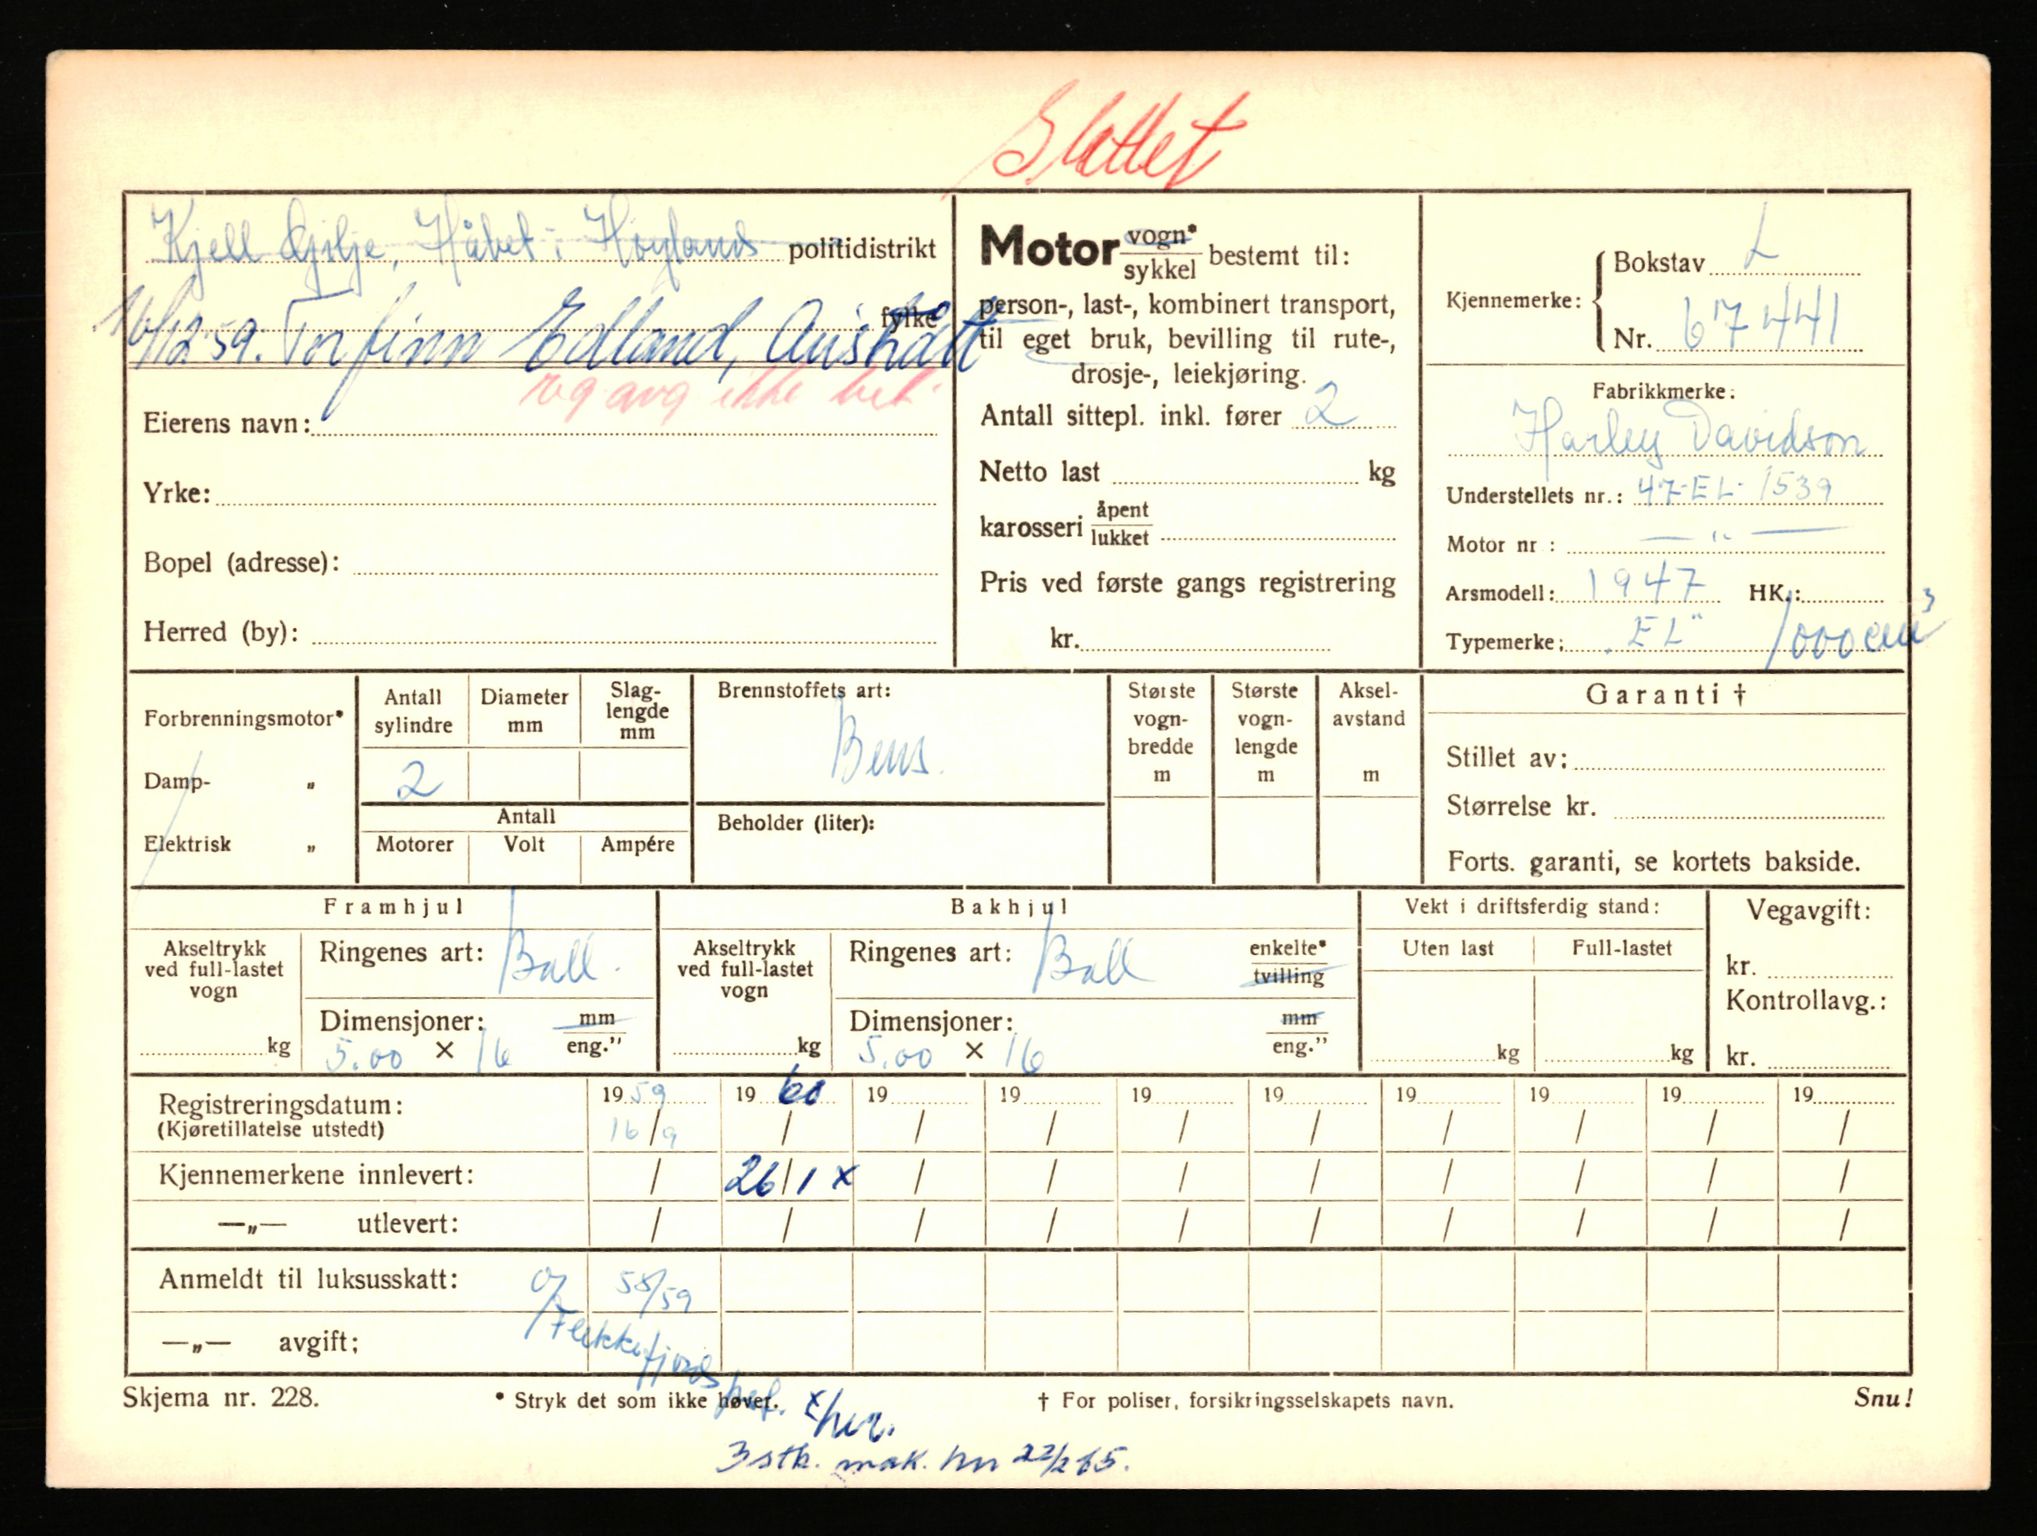 Slettet
Kjell Gilje, Håbet i Høyland politidistrikt
16/12 59. Torfinn Edland, Austrått fylke
avg ikke bet.
Eierens navn:
Yrke:
Bopel (adresse):
Herred (by):
Motor vogn* sykkel bestemt til:
person-, last-, kombinert transport,
til eget bruk, bevilling til rute-,
drosje-, leiekjøring.
Antall sittepl. inkl. fører 2
Netto last kg
karosseri åpent lukket
Pris ved første gangs registrering
kr.
Kjennemerke: Bokstav L
Nr. 67441
Fabrikkmerke:
Harley Davidson
Understellets nr.: 47-EL-1539
Motor nr : — " —
Arsmodell: 1947 HK.:
Typemerke: „EL" 1000 cm³
Forbrenningsmotor*
Damp- „
Elektrisk „
Antall sylindre
2
Diameter mm
Slag-lengde mm
Antall
Motorer Volt Ampére
Brennstoffets art:
Bens.
Beholder (liter):
Største vogn-bredde m
Største vogn-lengde m
Aksel-avstand m
Garanti †
Stillet av:
Størrelse kr.
Forts. garanti, se kortets bakside.
Framhjul
Akseltrykk ved full-lastet vogn
kg
Ringenes art: Ball.
Dimensjoner: mm eng."
5.00 × 16
Bakhjul
Akseltrykk ved full-lastet vogn
kg
Ringenes art: Ball enkelte* tvilling
Dimensjoner: mm eng."
5.00 × 16
Vekt i driftsferdig stand:
Uten last Full-lastet
kg kg
Vegavgift:
kr.
Kontrollavg.:
kr.
Registreringsdatum: 19 59 19 60 19 19 19 19 19 19 19 19
(Kjøretillatelse utstedt) 16/9 / / / / / / / / /
Kjennemerkene innlevert: / 26/1 x / / / / / / / /
—„— utlevert: / / / / / / / / / /
Anmeldt til luksusskatt: 58/59
Flekkefjord
—„— avgift:
Skjema nr. 228. * Stryk det som ikke høver. † For poliser, forsikringsselskapets navn. Snu!
x her.
3 stk. mak. her 22/2 65.